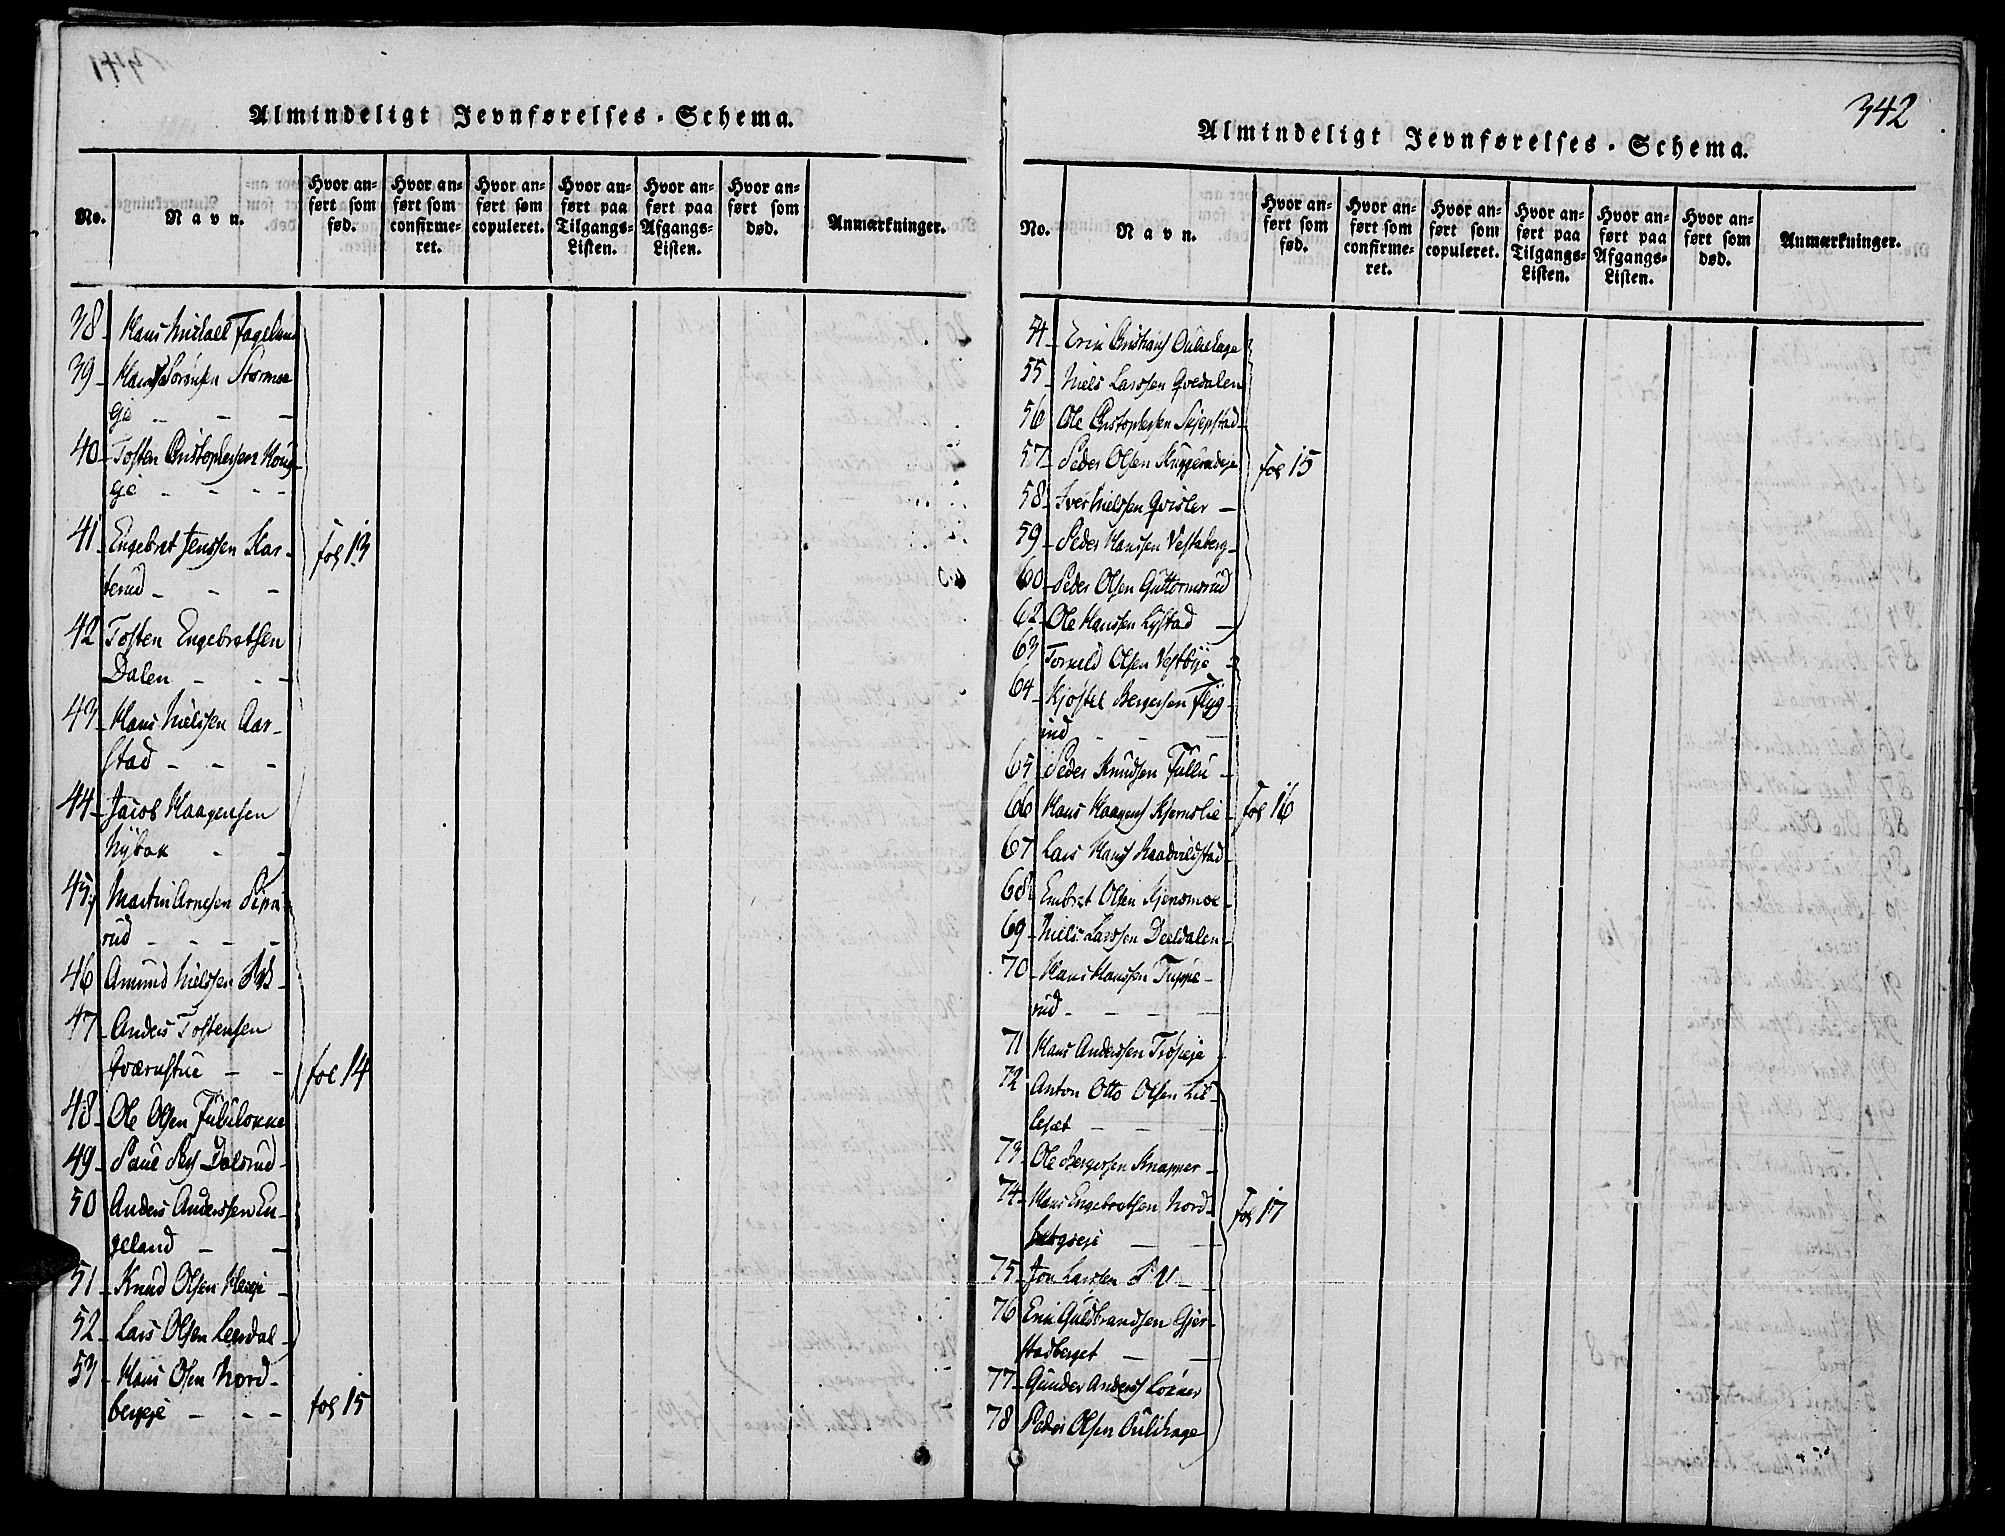 Almindeligt Jevnførelses-Schema.
No.
Navn.
Hvor anført som fød.
Hvor anført som confirmeret.
Hvor anført som copuleret.
Hvor anført paa Tilgangs-Listen.
Hvor anført paa Afgangs-Listen.
Hvor anført som død.
Anmærkninger.
38 Hans Michael
39 Hans Sørensen Stormoe
eje
40 Tosten Christophersen Houg
eje
41 Engebret Jenssen Kar-
terud fol 13
42 Tosten Engebretsen
Dalen
43 Hans Nielssen Aar-
stad
44 Jacob Haagensen
Nybak
45 Martin Arnesen
rud
46 Amund Nielssen
47 Anders Tostensen
Qværnstue fol 14
48 Ole Olsen
49 Paul Dølsrud
50 Anders Anderssen En-
geland
51 Knud Olsen
52 Lars Olsen Leerdal
53 Hans Olsen Nord-
bergeje fol 15
342
Almindeligt Jevnførelses-Schema.
No.
Navn.
Hvor anført som fød.
Hvor anført som confirmeret.
Hvor anført som copuleret.
Hvor anført paa Tilgangs-Listen.
Hvor anført paa Afgangs-Listen.
Hvor anført som død.
Anmærkninger.
54 Erik Christians
55 Niels Larssen Qvedalen
56 Ole Christophersen
57 Peder Olsen fol 15
58 Iver Nielssen Qvisler
59 Peder Hanssen Vestaberg
60 Peder Olsen Guttormsrud
62 Ole Hanssen Lystad
63 Torkeld Olsen Vestbye
64 Kjøstel Bergersen Flyg-
rud
65 Peder Knudsen Fulu
66 Hans Haagens Kjernslie fol 16
67 Lars Hans Raadvildstad
68 Embret Olsen Kjensmoe
69 Niels Larssen Deeldalen
70 Hans Hanssen Tuppe-
rud
71 Hans Anderssen
72 Anton Otto Olsen Lil-
leset
73 Ole Bergersen Knapper
74 Hans Engebretsen Nord-
bergseje fol 17
75 Jon Larssen
76 Erik Guldbrandsen Gjer-
stadberget
77 Gunder Anders
78 Peder Olsen